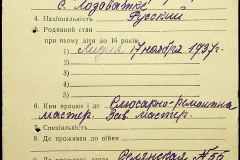 с. Лозоватке
4. Національність Русский
5. Родинний стан
при ньому діти до 16 років:
1. Лидия 17 ноября 1937 г.
2.
3.
4.
5.
6. Ким працює і де Слюсарно-ремонтна
мастер. Зав. мастер.
Спеціальність
8. Де проживав до війни
№ 55